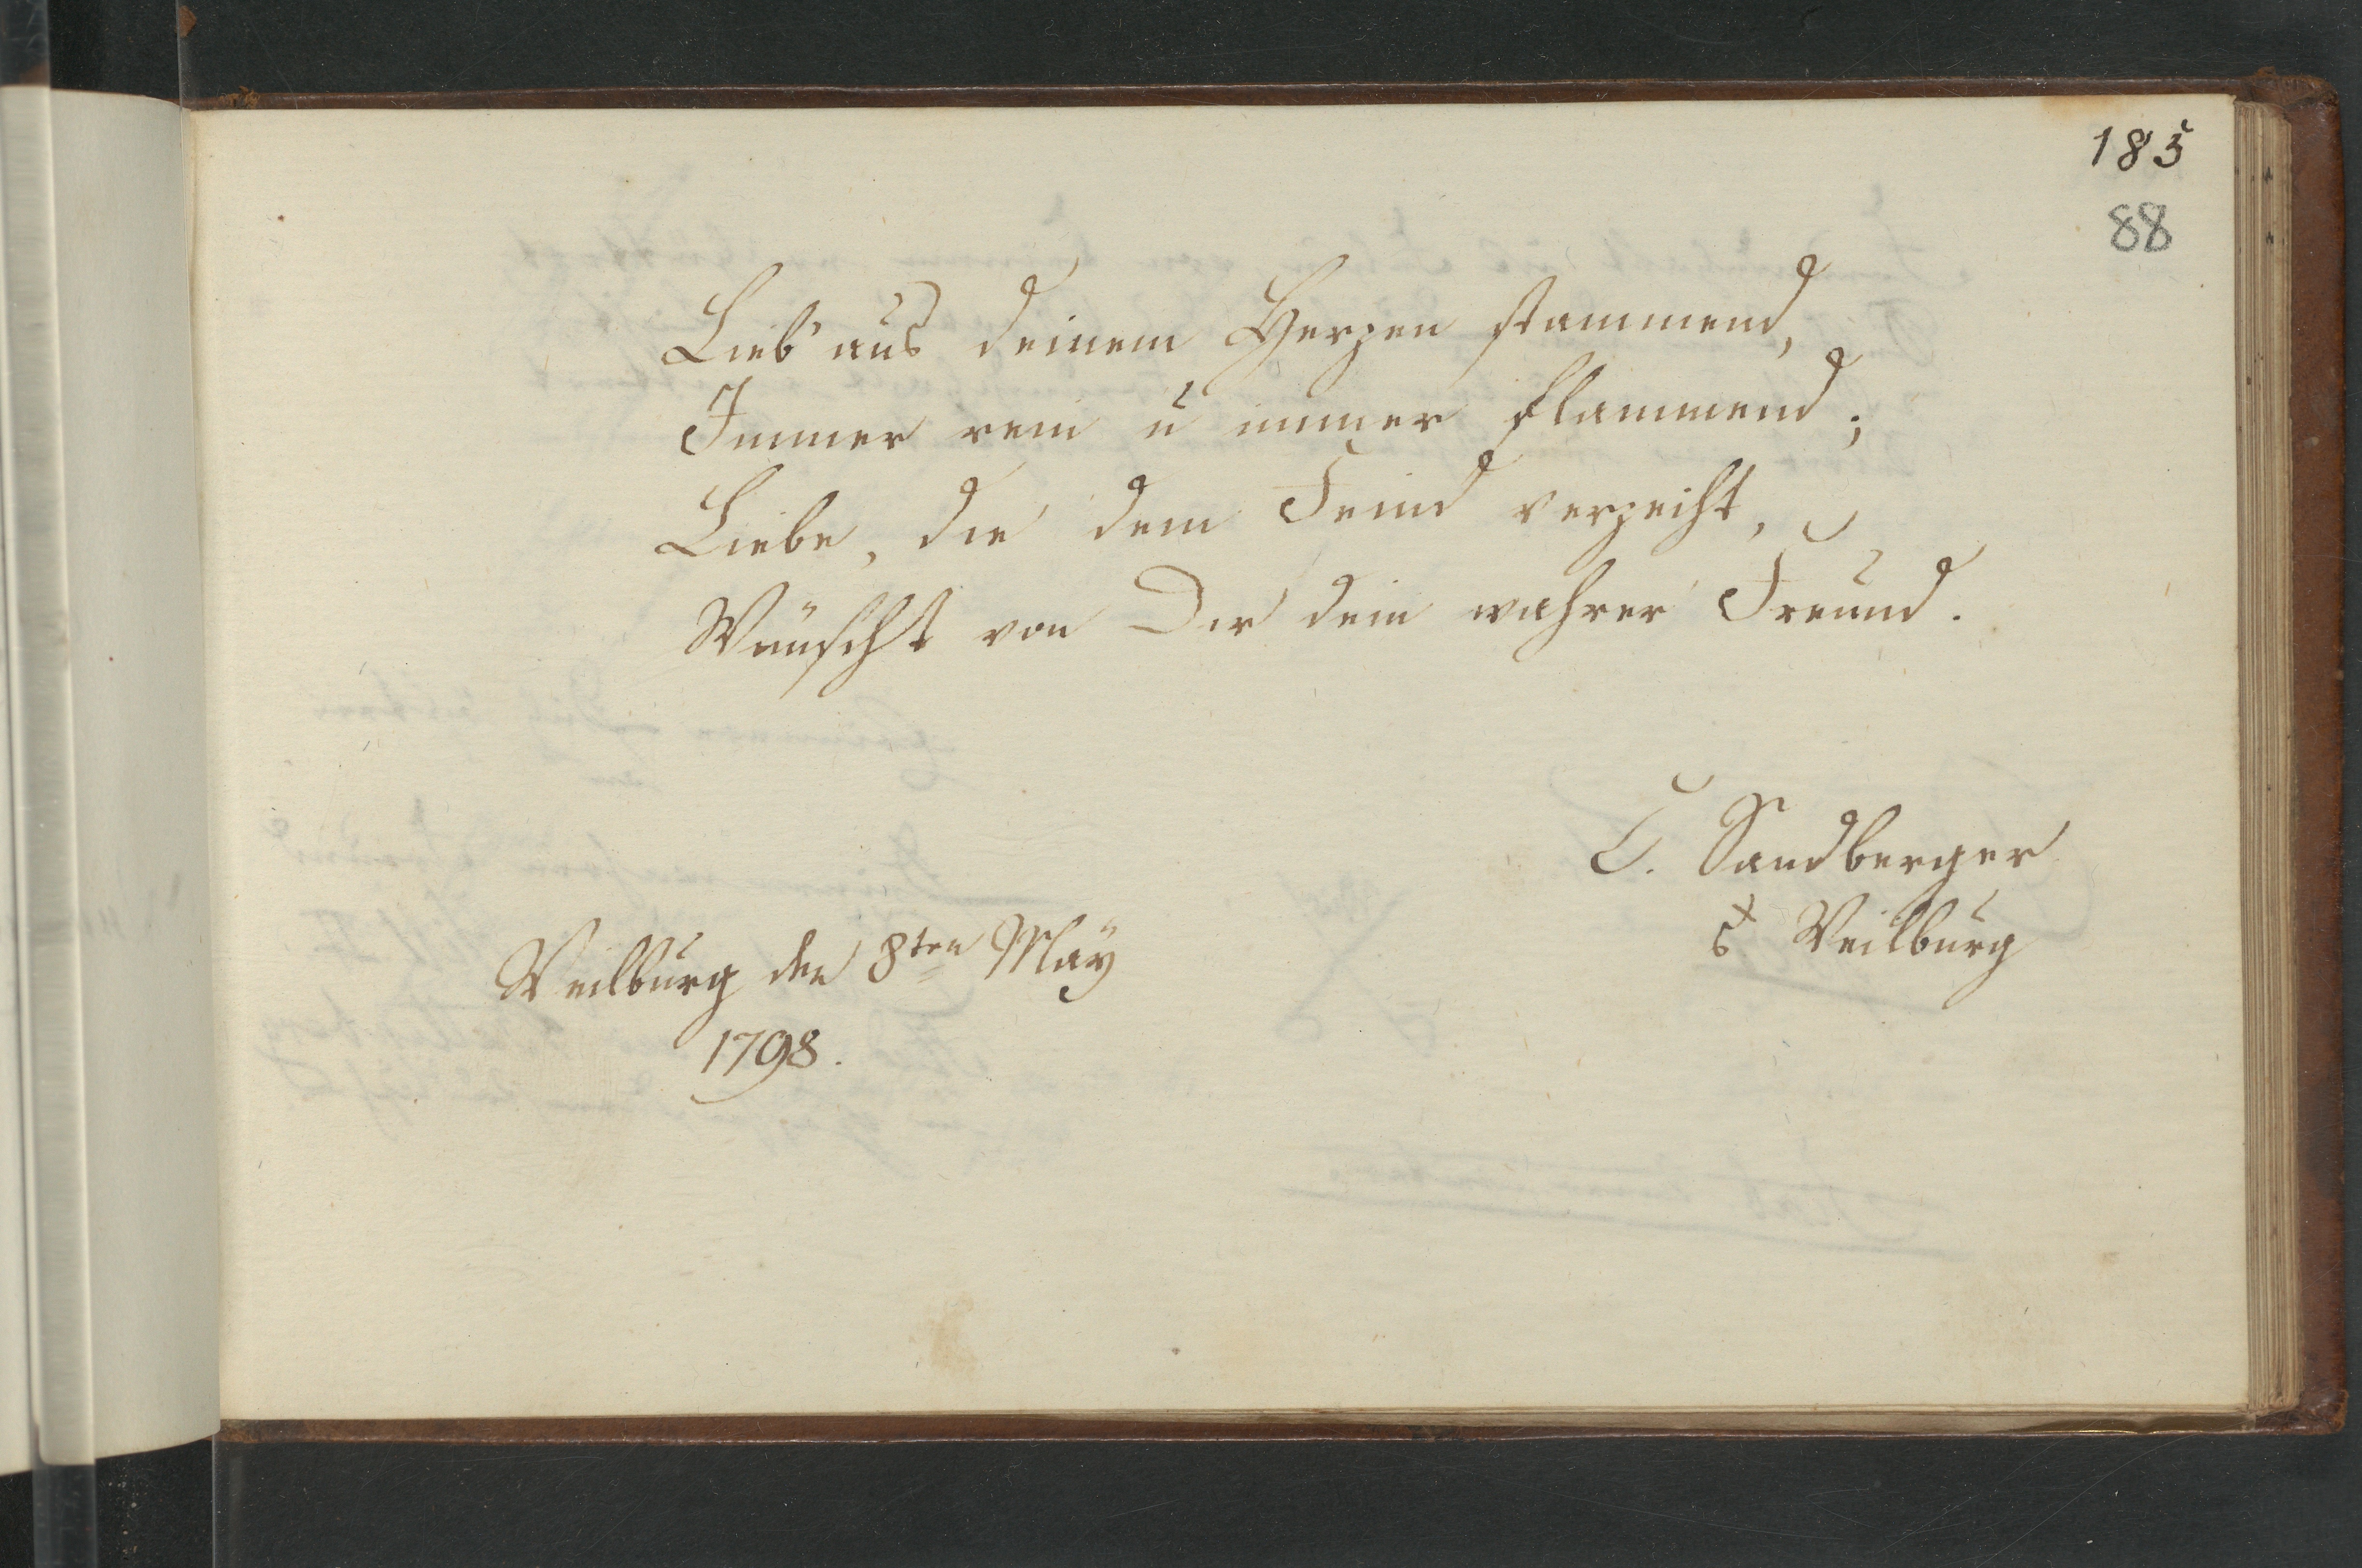 185
88
Lieb' aus deinem Herzen stammend,
Immer rein u immer flammend;
Liebe, die dem Feind verzeiht,
Wünscht von Dir dein wahrer Freund.
C. Sandberger
Weilburg
Weilburg den 8ten May
1798.